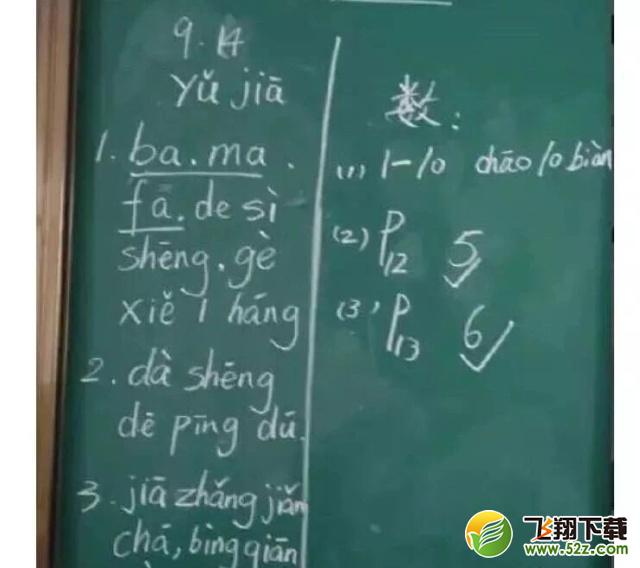 9.14
yǔ jiā
1. ba. ma.
fā. de sì
shēng. gè
xiě 1 háng
2. dà shēng
dē pīng dú.
3. jiā zhǎng jiǎn
chá, bìng qiān
数:
(1) 1-10 chāo 10 biàn
(2) P12 5
(3) P13 6
飞翔下载
www.52z.com